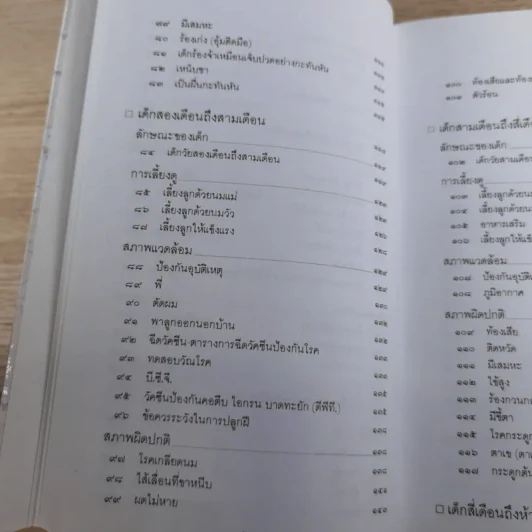 ๗๙ มีเสมหะ
๘๐ ร้องเก่ง (อุ้มติดมือ)
๘๑ เด็กร้องจ้าเหมือนเจ็บปวดอย่างกะทันหัน
๘๒ เหน็บชา
๘๓ เป็นผื่นกะทันหัน
เด็กสองเดือนถึงสามเดือน
ลักษณะของเด็ก
๘๔ เด็กวัยสองเดือนถึงสามเดือน
การเลี้ยงดู
๘๕ เลี้ยงลูกด้วยนมแม่
๘๖ เลี้ยงลูกด้วยนมวัว
๘๗ เลี้ยงลูกให้แข็งแรง
สภาพแวดล้อม
๘๘ ป้องกันอุบัติเหตุ
๘๙ พี่
๙๐ ตัดผม ๑๓๐
๙๑ พาลูกออกนอกบ้าน
๙๒ ฉีดวัคซีน ตารางการฉีดวัคซีนป้องกันโรค
๙๓ ทดสอบวัณโรค
๙๔ บี.ซี.จี.
๙๕ วัคซีนป้องกันคอตีบ ไอกรน บาดทะยัก (ดีพีที.) ๑๓๕
๙๖ ข้อควรระวังในการปลูกฝี ๑๓๖
สภาพผิดปกติ ๑๓๘
๙๗ โรคเกลียดนม ๑๓๘
๙๘ ไส้เลื่อนที่ขาหนีบ
๙๙ ผดไม่หาย
๑๐๐ ท้องเสียและท้อง
๑๐๑ ตัวร้อน
เด็กสามเดือนถึงสี่เดือ
ลักษณะของเด็ก
๑๐๒ เด็กวัยสามเดือน
การเลี้ยงดู
๑๐๓ เลี้ยงลูกด้วย
๑๐๔ เลี้ยงลูกด้วย
๑๐๕ อาหารเสริม
๑๐๖ เลี้ยงลูกให้แข็ง
สภาพแวดล้อม
๑๐๗ ป้องกันอุบัติ
๑๐๘ ภูมิอากาศ
สภาพผิดปกติ
๑๐๙ ท้องเสีย
๑๑๐ ติดหวัด
๑๑๑ มีเสมหะ
๑๑๒ ไข้สูง
๑๑๓ ร้องกวนก
๑๑๔ มีขี้ตา
๑๑๕ โรคกระดูก
๑๑๖ ตาเข (ตาเ
๑๑๗ กระดูกต้น
เด็กสี่เดือนถึงห้า